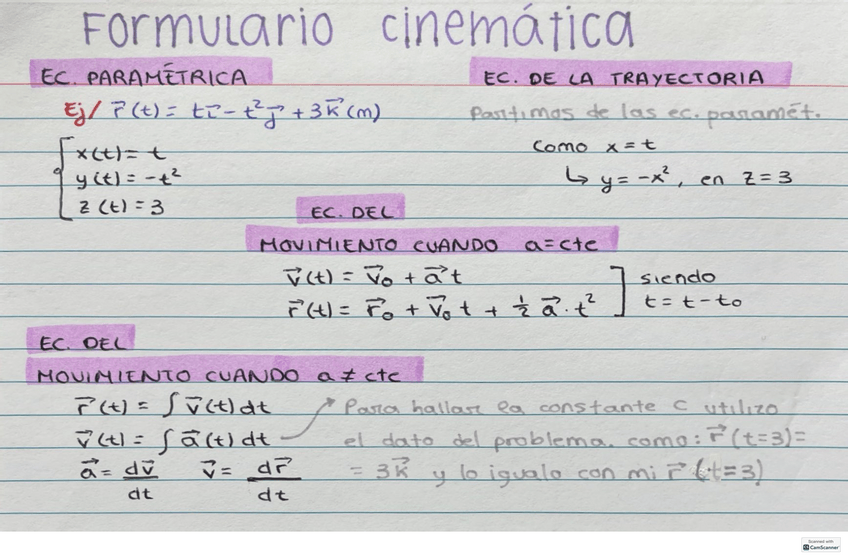 Formulario cinemática
EC. PARAMÉTRICA
Ej/ r⃗(t) = ti⃗ - t²j⃗ + 3k⃗ (m)
x(t) = t
y(t) = -t²
z(t) = 3
EC. DE LA TRAYECTORIA
Partimos de las ec. paramét.
Como x = t
↳ y = -x², en z = 3
EC. DEL
MOVIMIENTO CUANDO a = cte
v⃗(t) = v⃗₀ + a⃗ t
r⃗(t) = r⃗₀ + v⃗₀ t + ½ a⃗ · t²
siendo
t = t - t₀
EC. DEL
MOVIMIENTO CUANDO a ≠ cte
r⃗(t) = ∫ v⃗(t) dt
v⃗(t) = ∫ a⃗(t) dt
a⃗ = dv⃗/dt v⃗ = dr⃗/dt
Para hallar la constante C utilizo
el dato del problema. como: r⃗(t=3) =
= 3k⃗ y lo igualo con mi r⃗(t=3)
Scanned with
CamScanner